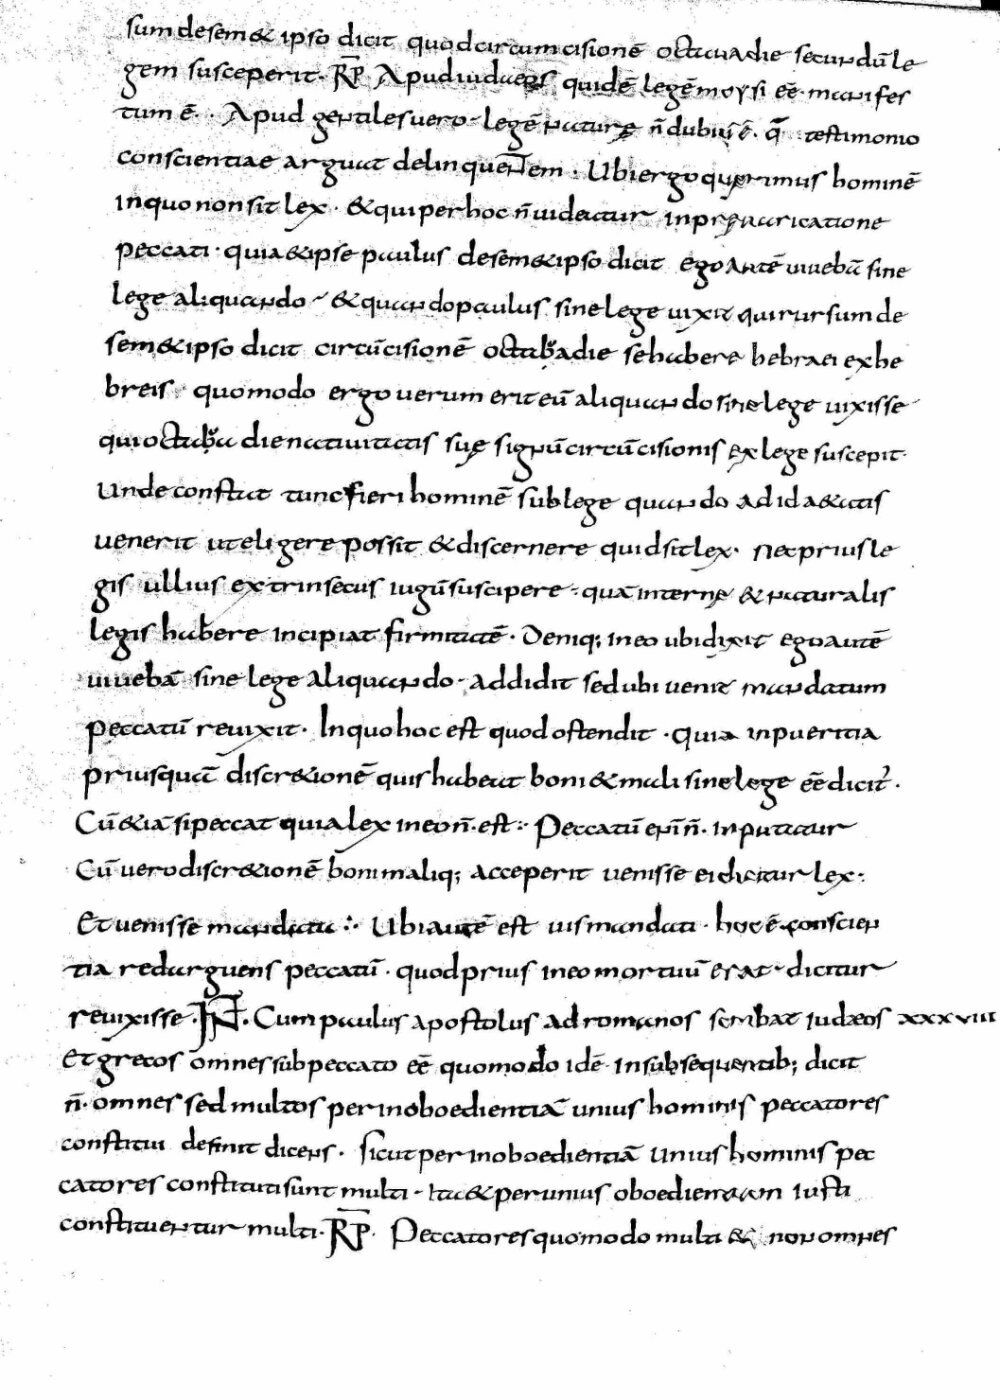 sum de sem& ipso dicit quod circumcisionē octava die secundū le
gem susceperit. R̅P̅ Apud iudaeos quidē legē moysi eē manifes
tum ē. Apud gentiles vero legē naturę n̄ dubiū ē. q̄ testimonio
conscientiae arguat delinquentem. Ubi ergo querimus hominē
in quo non sit lex. & qui per hoc n̄ videatur in pręvaricatione
peccati. quia & ipse paulus de sem&ipso dicit ego autē vivebā sine
lege aliquando & quando paulus sine lege vixit qui rursum de
sem&ipso dicit circūcisionē octaba die se habere hebraei ex he
breis. quomodo ergo verum erit eū aliquando sine lege vixisse
qui octaba die nativitatis suę signū circūcisionis ex lege suscepit.
Unde constat tunc fieri hominē sub lege quando ad id a&atis
venerit ut eligere possit & discernere quid sit lex. nec prius le
gis ullius extrinsecus iugū suscipere. quā internę & naturalis
legis habere incipiat firmitatē. Deniq; in eo ubi dixit ego autē
vivebā sine lege aliquando. addidit sed ubi venit mandatum
peccatū revixit. In quo hoc est quod ostendit. quia in pueritia
priusquā discr&ionē quis habeat boni & mali sine lege eē dicit̓.
Cū &iā si peccat quia lex in eo n̄. est: Peccatū enī n̄. inputatur
Cū vero discr&ionē boni maliq; acceperit venisse ei dicitur lex:
Et venisse mandatū ∴ Ubi autē est vis mandati. hoc ē conscien
tia redarguens peccatū. quod prius in eo mortuū erat. dicitur
revixisse. IN̄. Cum paulus apostolus ad romanos scribat iudæos xxxviii
Et grecos omnes sub peccato eē quomodo idē in subsequentib; dicit
n̄. omnes sed multos per inoboedientiā unius hominis peccatores
constitui definit dicens. sicut per inoboedientiā unius hominis pec
catores constituti sunt multi. Ita & per unius oboedientiam iusti
constituentur multi. R̅P̅. Peccatores quomodo multi & non omnes